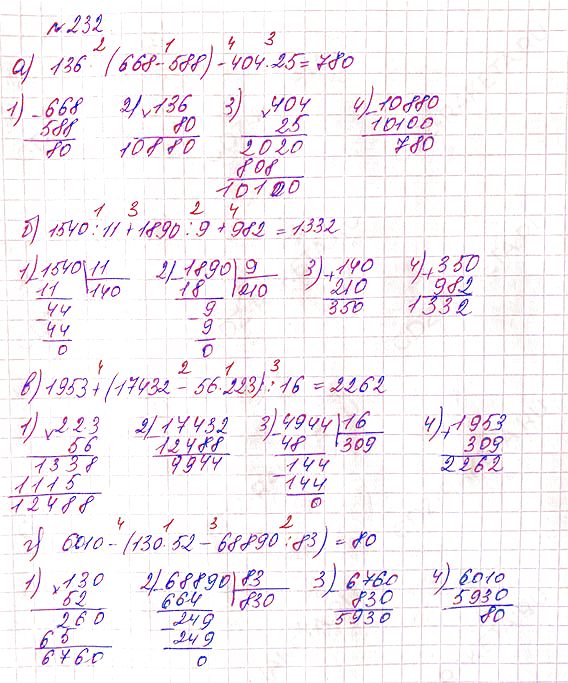 №232
2 1 4 3
а) 136 · (668-588) - 404·25 = 780
1) - 668 2) × 136 3) × 404 4) - 10880
588 80 25 10100
80 10880 2020 780
808
10100
1 3 2 4
б) 1540 : 11 + 1890 : 9 + 982 = 1332
1) - 1540 11 2) - 1890 9 3) + 140 4) + 350
11 140 18 210 210 982
- 44 - 9 350 1332
44 9
0 0
4 2 1 3
в) 1953 + (17432 - 56·223) : 16 = 2262
1) × 223 2) - 17432 3) - 4944 16 4) + 1953
56 12488 48 309 309
1338 9944 - 144 2262
1115 144
12488 0
4 1 3 2
г) 6010 - (130·52 - 68890 : 83) = 80
1) × 130 2) - 68890 83 3) - 6760 4) - 6010
52 664 830 830 5930
260 - 249 5930 80
65 249
6760 0